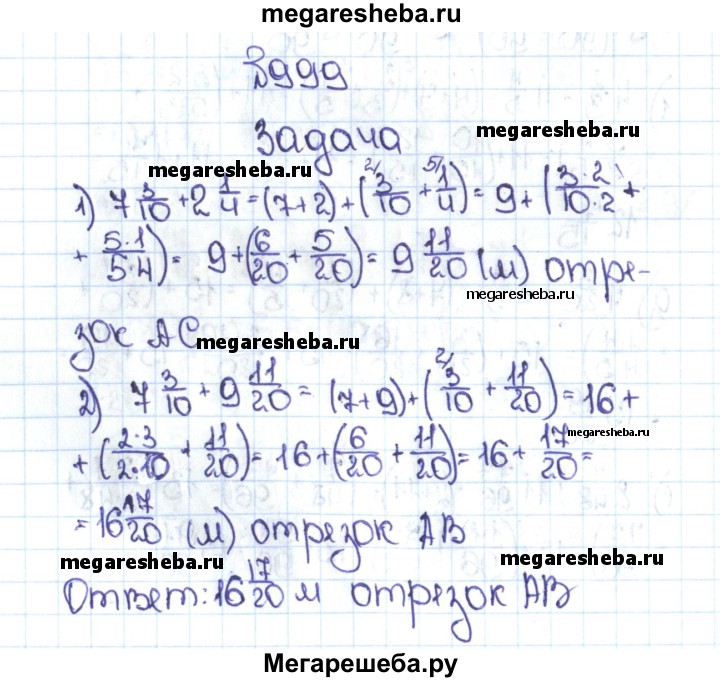 megaresheba.ru
№999
Задача
megaresheba.ru
megaresheba.ru
1) 7 3/10 + 2 1/4 = (7+2) + (2/ 3/10 + 5/ 1/4) = 9 + (3·2/10·2 +
+ 5·1/5·4) = 9 + (6/20 + 5/20) = 9 11/20 (м) отре-
megaresheba.ru
зок АС
megaresheba.ru
2) 7 3/10 + 9 11/20 = (7+9) + (2/ 3/10 + 11/20) = 16 +
megaresheba.ru
+ (2·3/2·10 + 11/20) = 16 + (6/20 + 11/20) = 16 + 17/20 =
= 16 17/20 (м) отрезок АВ
megaresheba.ru
megaresheba.ru
Ответ: 16 17/20 м отрезок АВ
Мегарешеба.ру